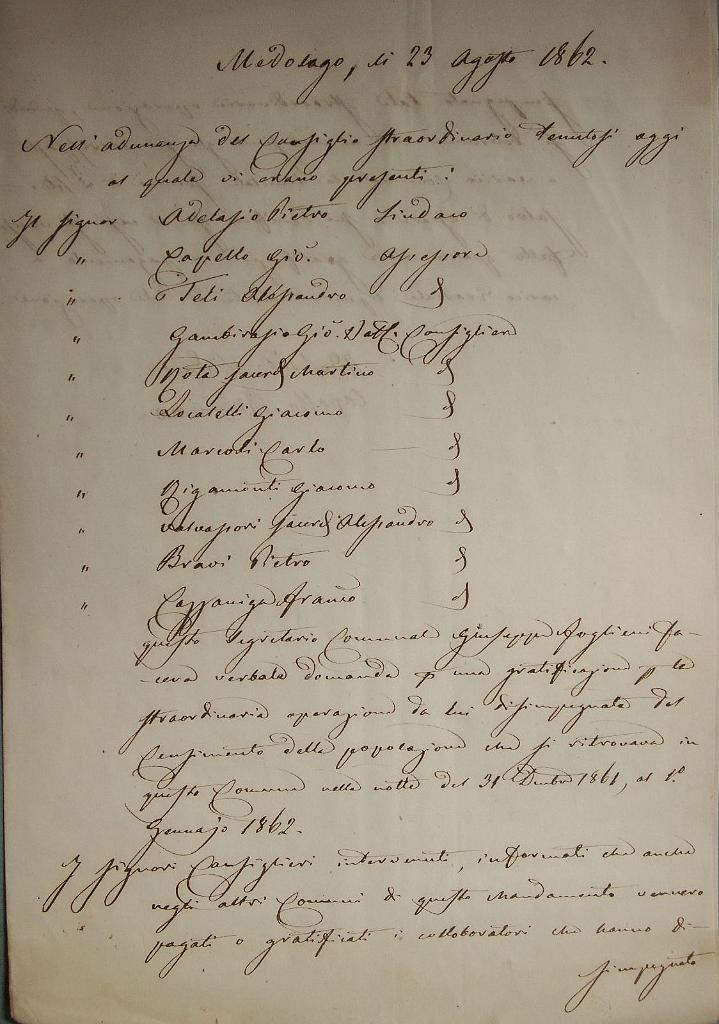 Medolago, li 23 Agosto 1862.
Nell'adunanza del Consiglio straordinario tenutosi oggi
al quale vi erano presenti:
Il Signor Adelasio Pietro Sindaco
" Capello Gio. Assessore
" Teli Alessandro d
" Gambirasio Gio. Batt. Consigliere
" Rota Sacerd Martino d
" Locatelli Giacomo d
" Marcodi Carlo d
" Rigamonti Giacomo d
" Valvassori Sacerd Alessandro d
" Bravi Pietro d
" Cazzaniga Franco d
questo Segretario Comunale Giuseppe Foglieni fa-
ceva verbale domanda p una gratificazione p la
straordinaria operazione da lui disimpegnata del
Censimento della popolazione che si ritrovava in
questo Comune nella notte del 31 Dicembre 1861, al 1°
Gennajo 1862.
I Signori Consiglieri intervenuti, informati che anche
negli altri Comuni di questo Mandamento vennero
pagati o gratificati i collaboratori che hanno di-
simpegnato